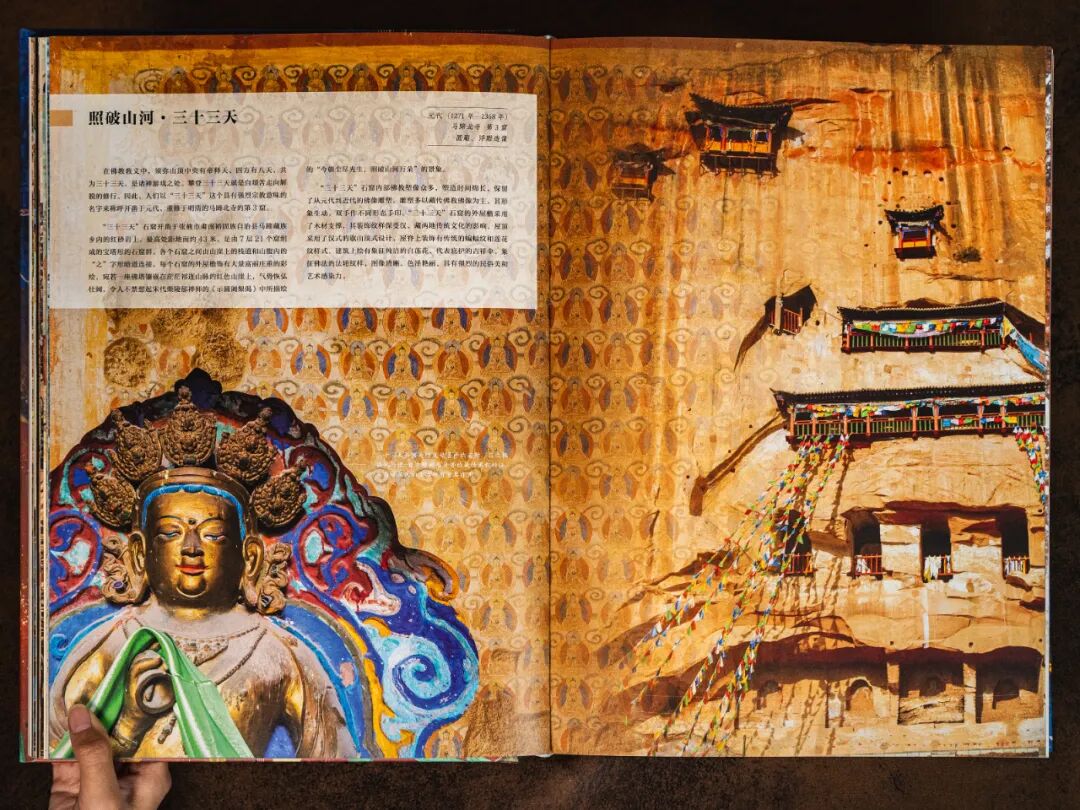 照破山河·三十三天
元代（1271 年—1368 年）
马蹄北寺 第 3 窟
在佛教教义中，须弥山顶中央有帝释天，四方有八天，共
为三十三天，是诸神游戏之处，攀登三十三天就是自艰苦走向解
脱的修行。因此，人们以“三十三天”这个具有强烈宗教意味的
名字来称呼开凿于元代、重修于明清的马蹄北寺的第 3 窟。
“三十三天”石窟开凿于张掖市肃南裕固族自治县马蹄藏族
乡内的红砂岩上，最高处距地面约 43 米，是由 7 层 21 个窟组
成的宝塔形的石窟群。各个石窟之间由山崖上的栈道和山腹内的
“之”字形暗道连接，每个石窟的外屋檐饰有大量庄丽庄重的彩
绘，宛若一座佛塔镶嵌在茫茫祁连山脉的红色山崖上，气势恢弘
壮阔，令人不禁想起宋代 中所描绘
的“今朝尘尽光生，照破山河万朵”的景象。
“三十三天”石窟内部佛教塑像众多，塑造时间绵长，保留
了从元代到近代的佛像雕塑。雕塑多以藏传佛教佛像为主，其形
象生动，双手作不同形态手印。“三十三天”石窟的外屋檐采用
了木材支撑，其装饰纹样深受汉、藏两地传统文化的影响，屋顶
采用了汉式的歇山顶式设计，屋脊上装饰有传统的蝙蝠纹和莲花
纹样式，建筑上绘有象征纯洁的白莲花、代表庇护的吉祥伞、象
征佛法的法轮纹样，图像清晰、色泽艳丽，具有强烈的民俗美和
艺术感染力。